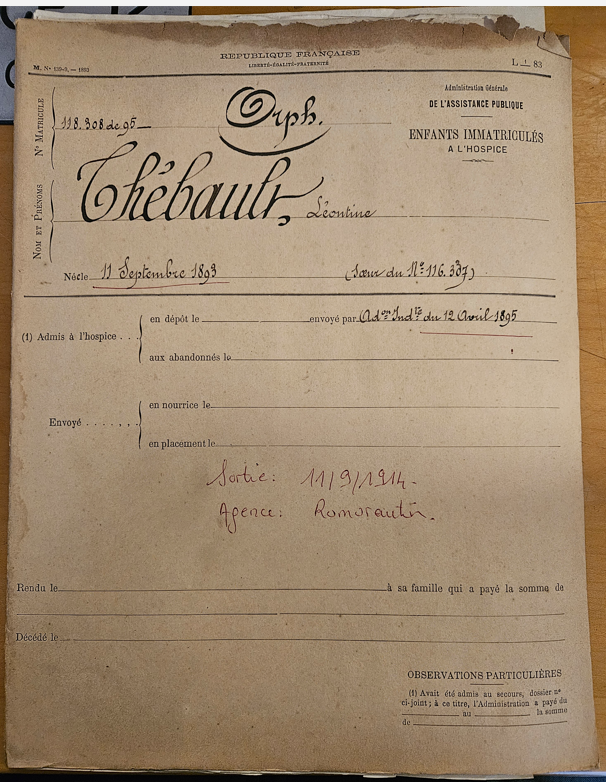 REPUBLIQUE FRANÇAISE
LIBERTÉ-ÉGALITÉ-FRATERNITÉ
M. Nº 139-3, — 1893
L 1 83
Administration Générale
DE L'ASSISTANCE PUBLIQUE
ENFANTS IMMATRICULÉS
A L'HOSPICE
Nº MATRICULE
118.308 de 95
Orph.
NOM ET PRÉNOMS
Thébault, Léontine
Né e le 11 Septembre 1893 (Sœur du Nº 116.337)
(1) Admis à l'hospice . . .
en dépôt le envoyé par Adon Indte du 12 Avril 1895
aux abandonnés le
Envoyé . . . . . . .
en nourrice le
en placement le
Sortie: 11/9/1914.
Agence: Romorantin.
Rendu le à sa famille qui a payé la somme de
Décédé le
OBSERVATIONS PARTICULIÈRES
(1) Avait été admis au secours, dossier nº
ci-joint ; à ce titre, l'Administration a payé du
au la somme
de